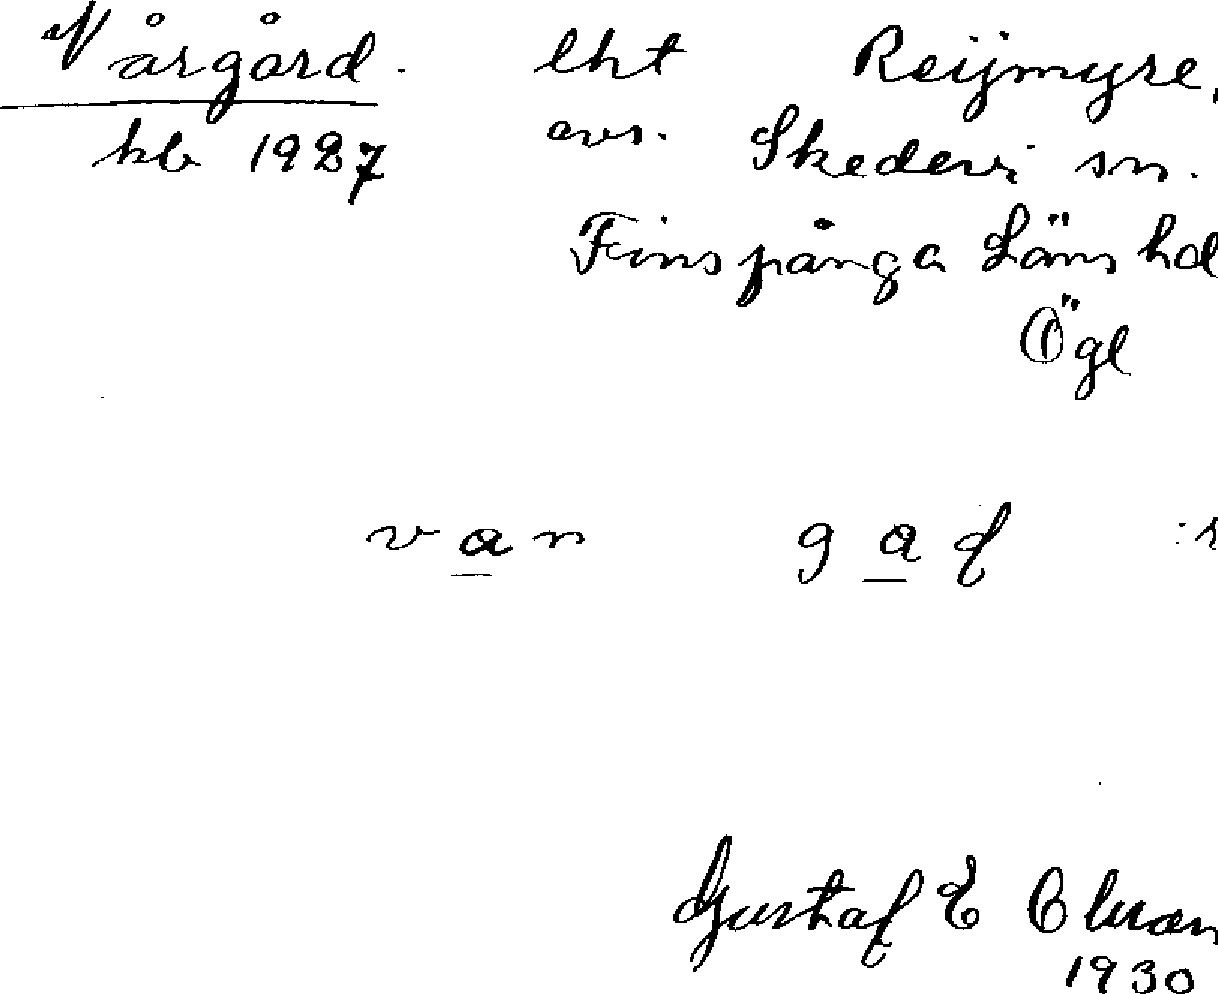 Vårgård. lht Reijmyre,
kb 1927 avs. Skedevi sn.
Finspånga Läns hd
Ögl
van gad
Gustaf E
1930